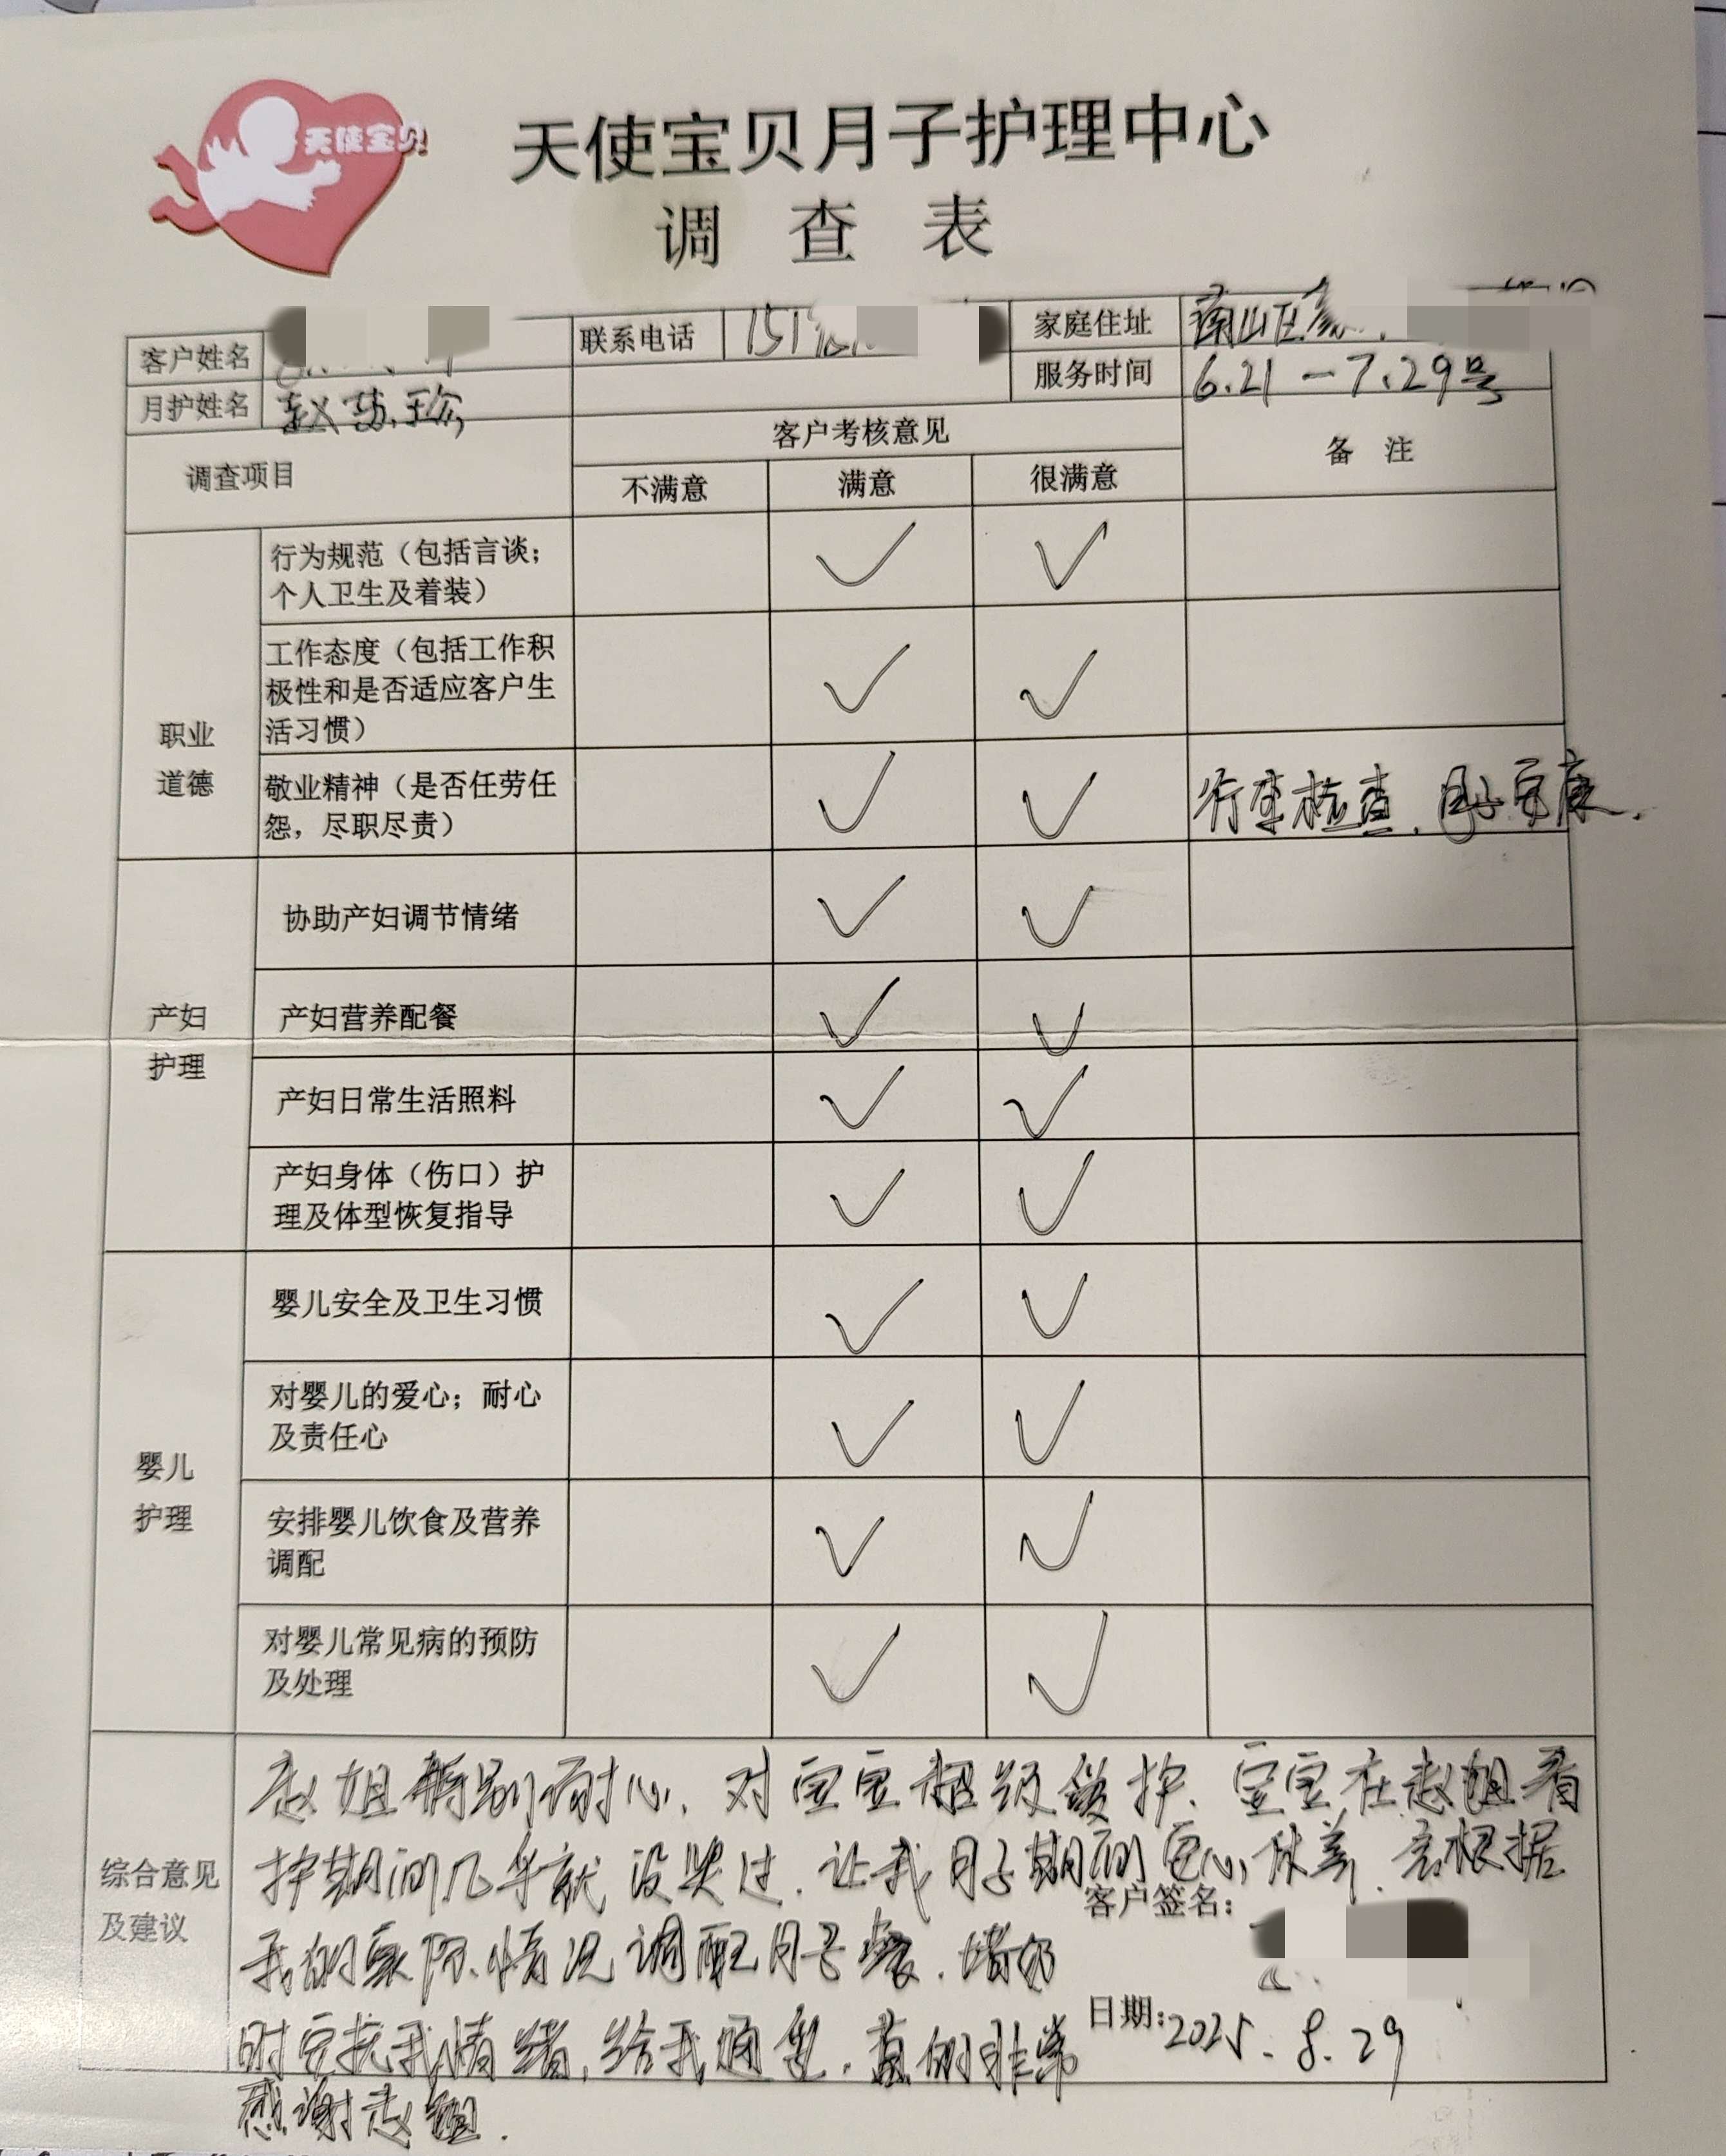 天使宝贝
天使宝贝月子护理中心
调 查 表
客户姓名
联系电话 151
家庭住址 南山区
月护姓名 赵
服务时间 6.21-7.29号
调查项目
客户考核意见
备 注
不满意 满意 很满意
职业
道德
行为规范（包括言谈；
个人卫生及着装） ✓ ✓
工作态度（包括工作积
极性和是否适应客户生
活习惯） ✓ ✓
敬业精神（是否任劳任
怨，尽职尽责） ✓ ✓
检查.月子
产妇
护理
协助产妇调节情绪 ✓ ✓
产妇营养配餐 ✓ ✓
产妇日常生活照料 ✓ ✓
产妇身体（伤口）护
理及体型恢复指导 ✓ ✓
婴儿
护理
婴儿安全及卫生习惯 ✓ ✓
对婴儿的爱心；耐心
及责任心 ✓ ✓
安排婴儿饮食及营养
调配 ✓ ✓
对婴儿常见病的预防
及处理 ✓ ✓
综合意见
及建议
赵姐特别耐心.对宝宝超级爱护.宝宝在赵姐看
护期间几乎就没哭过.让我月子期间安心休养.会根据
我的实际情况调配月子餐.堵奶
时安抚我情绪,给我通乳.真的非常
感谢赵姐.
客户签名：
日期:2025.8.29